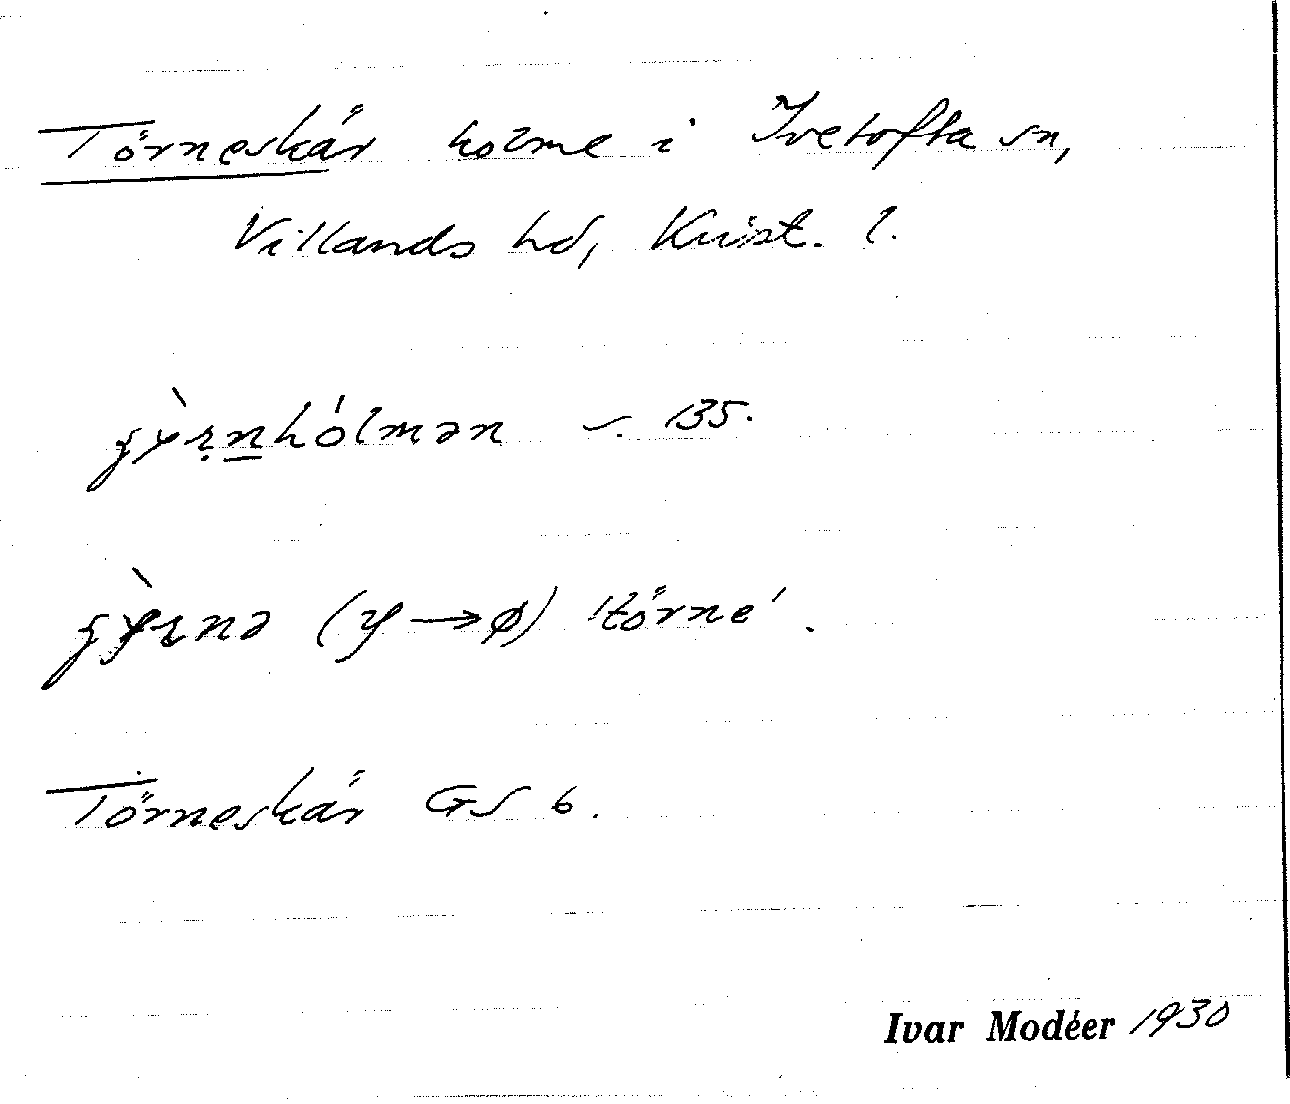 Törneskär holme i Ivetofta sn,
Villands hd, Krist. l.
135.
(y → ø) 'törne'.
Törneskär GS 6.
Ivar Modéer 1930